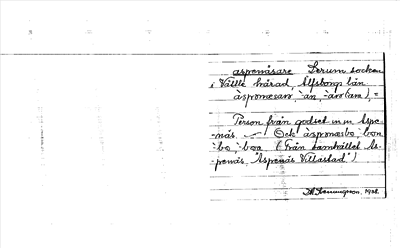 aspenäsare Lerum socken
i Vättle härad, Älfsborgs län.
àspənæsarə, -ən, -àrə(ana), =
Person från godset m.m. Aspe-
näs. — (Ock àspənæsbo, -bon
-bo, -boa. (Från samhället As-
penäs, "Aspenäs Villastad")
1928.